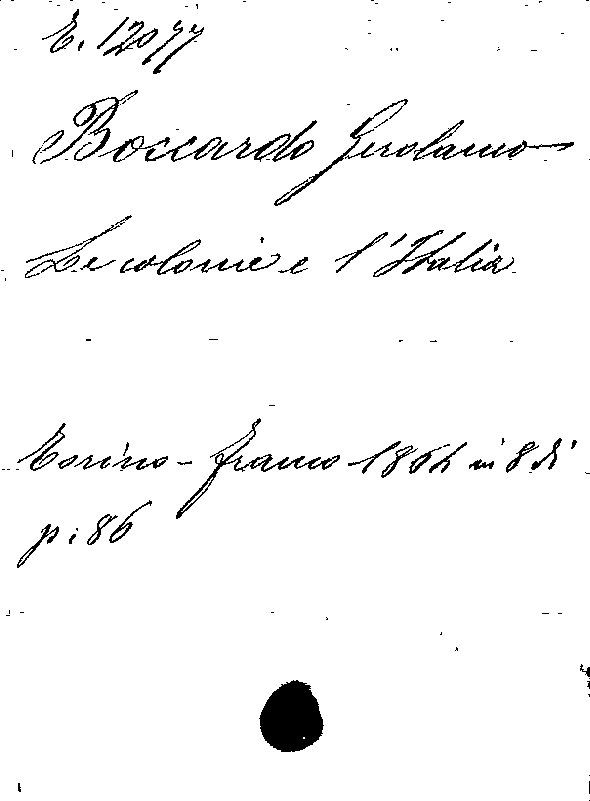 E. 12077
Boccardo Gerolamo
Le colonie e l'Italia
Torino - Franco 1864 in 8 di
p. 86